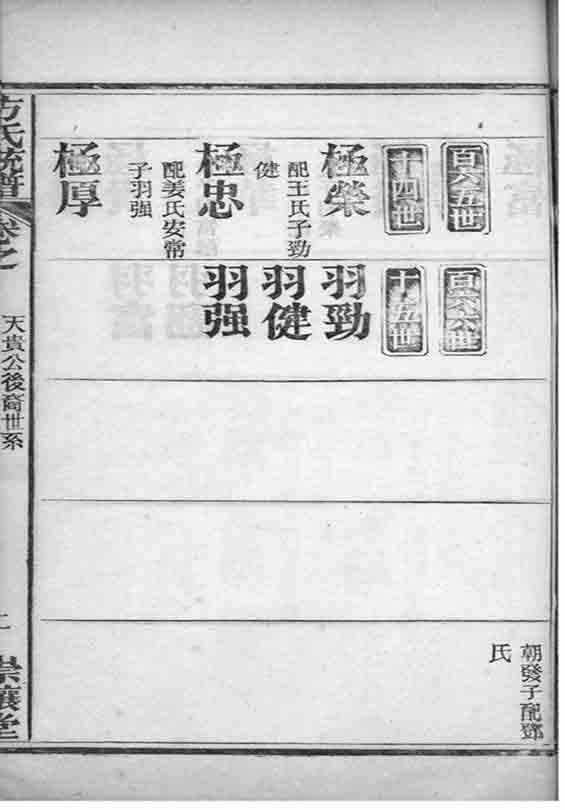 百六五世
十四世
極榮
配王氏子勁
健
極忠
配姜氏安常
子羽强
極厚
百六六世
十五世
羽勁
羽健
羽强
朝發子配鄧
氏
方氏統譜
卷之
天貴公後裔世系
崇讓堂